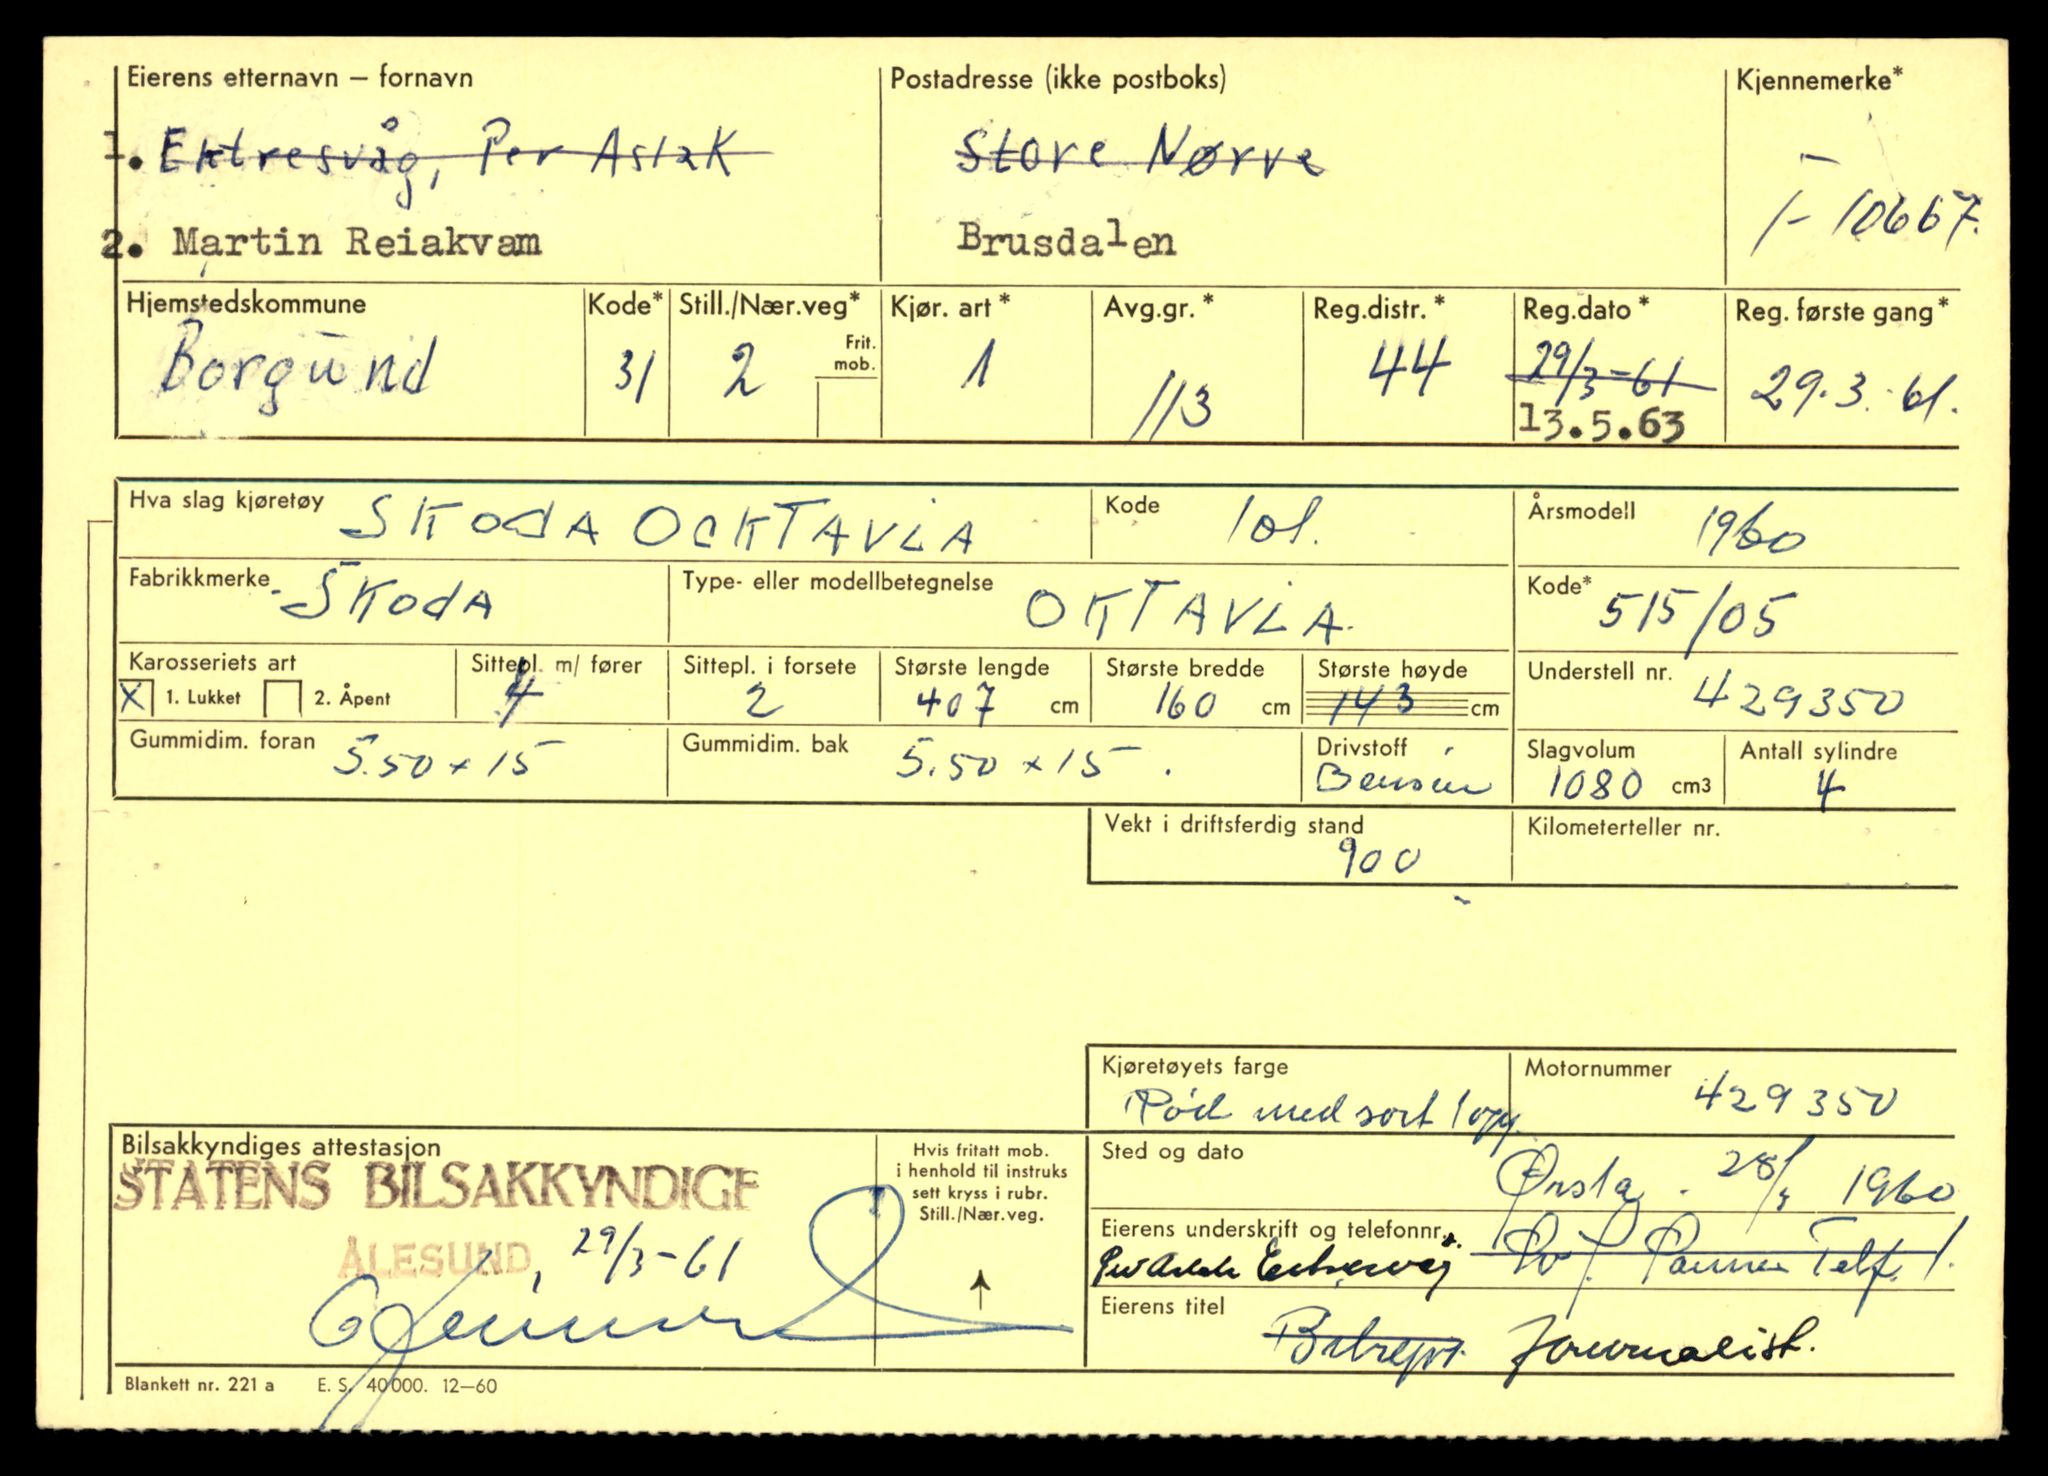 Eierens etternavn – fornavn Postadresse (ikke postboks) Kjennemerke*
1. Ektresvåg, Per Aslak Store Nørve
T- 10667.
2. Martin Reiakvam Brusdalen
Hjemstedskommune Kode* Still./Nær.veg* Kjør. art* Avg.gr.* Reg.distr.* Reg.dato* Reg. første gang*
Borgund 31 2 Frit. mob. 1 113 44 29/3-61 29.3.61.
13.5.63
Hva slag kjøretøy SKODA OCKTAVIA Kode 101. Årsmodell 1960
Fabrikkmerke SKODA Type- eller modellbetegnelse OKTAVIA. Kode* 515/05
Karosseriets art Sittepl. m/ fører Sittepl. i forsete Største lengde Største bredde Største høyde Understell nr.
X 1. Lukket 2. Åpent 4 2 407 cm 160 cm 143 cm 429350
Gummidim. foran 5.50 x 15 Gummidim. bak 5.50 x 15. Drivstoff Bensin Slagvolum 1080 cm3 Antall sylindre 4
Vekt i driftsferdig stand 900 Kilometerteller nr.
Kjøretøyets farge Motornummer
Rød med sort 429350
Bilsakkyndiges attestasjon Hvis fritatt mob. i henhold til instruks sett kryss i rubr. Still./Nær.veg. Sted og dato
STATENS BILSAKKYNDIGE Ørsta. 1960
ÅLESUND, 29/3-61
Eierens underskrift og telefonnr.
Telf. 1.
Eierens titel
Journalist.
Blankett nr. 221 a E. S. 40000. 12–60